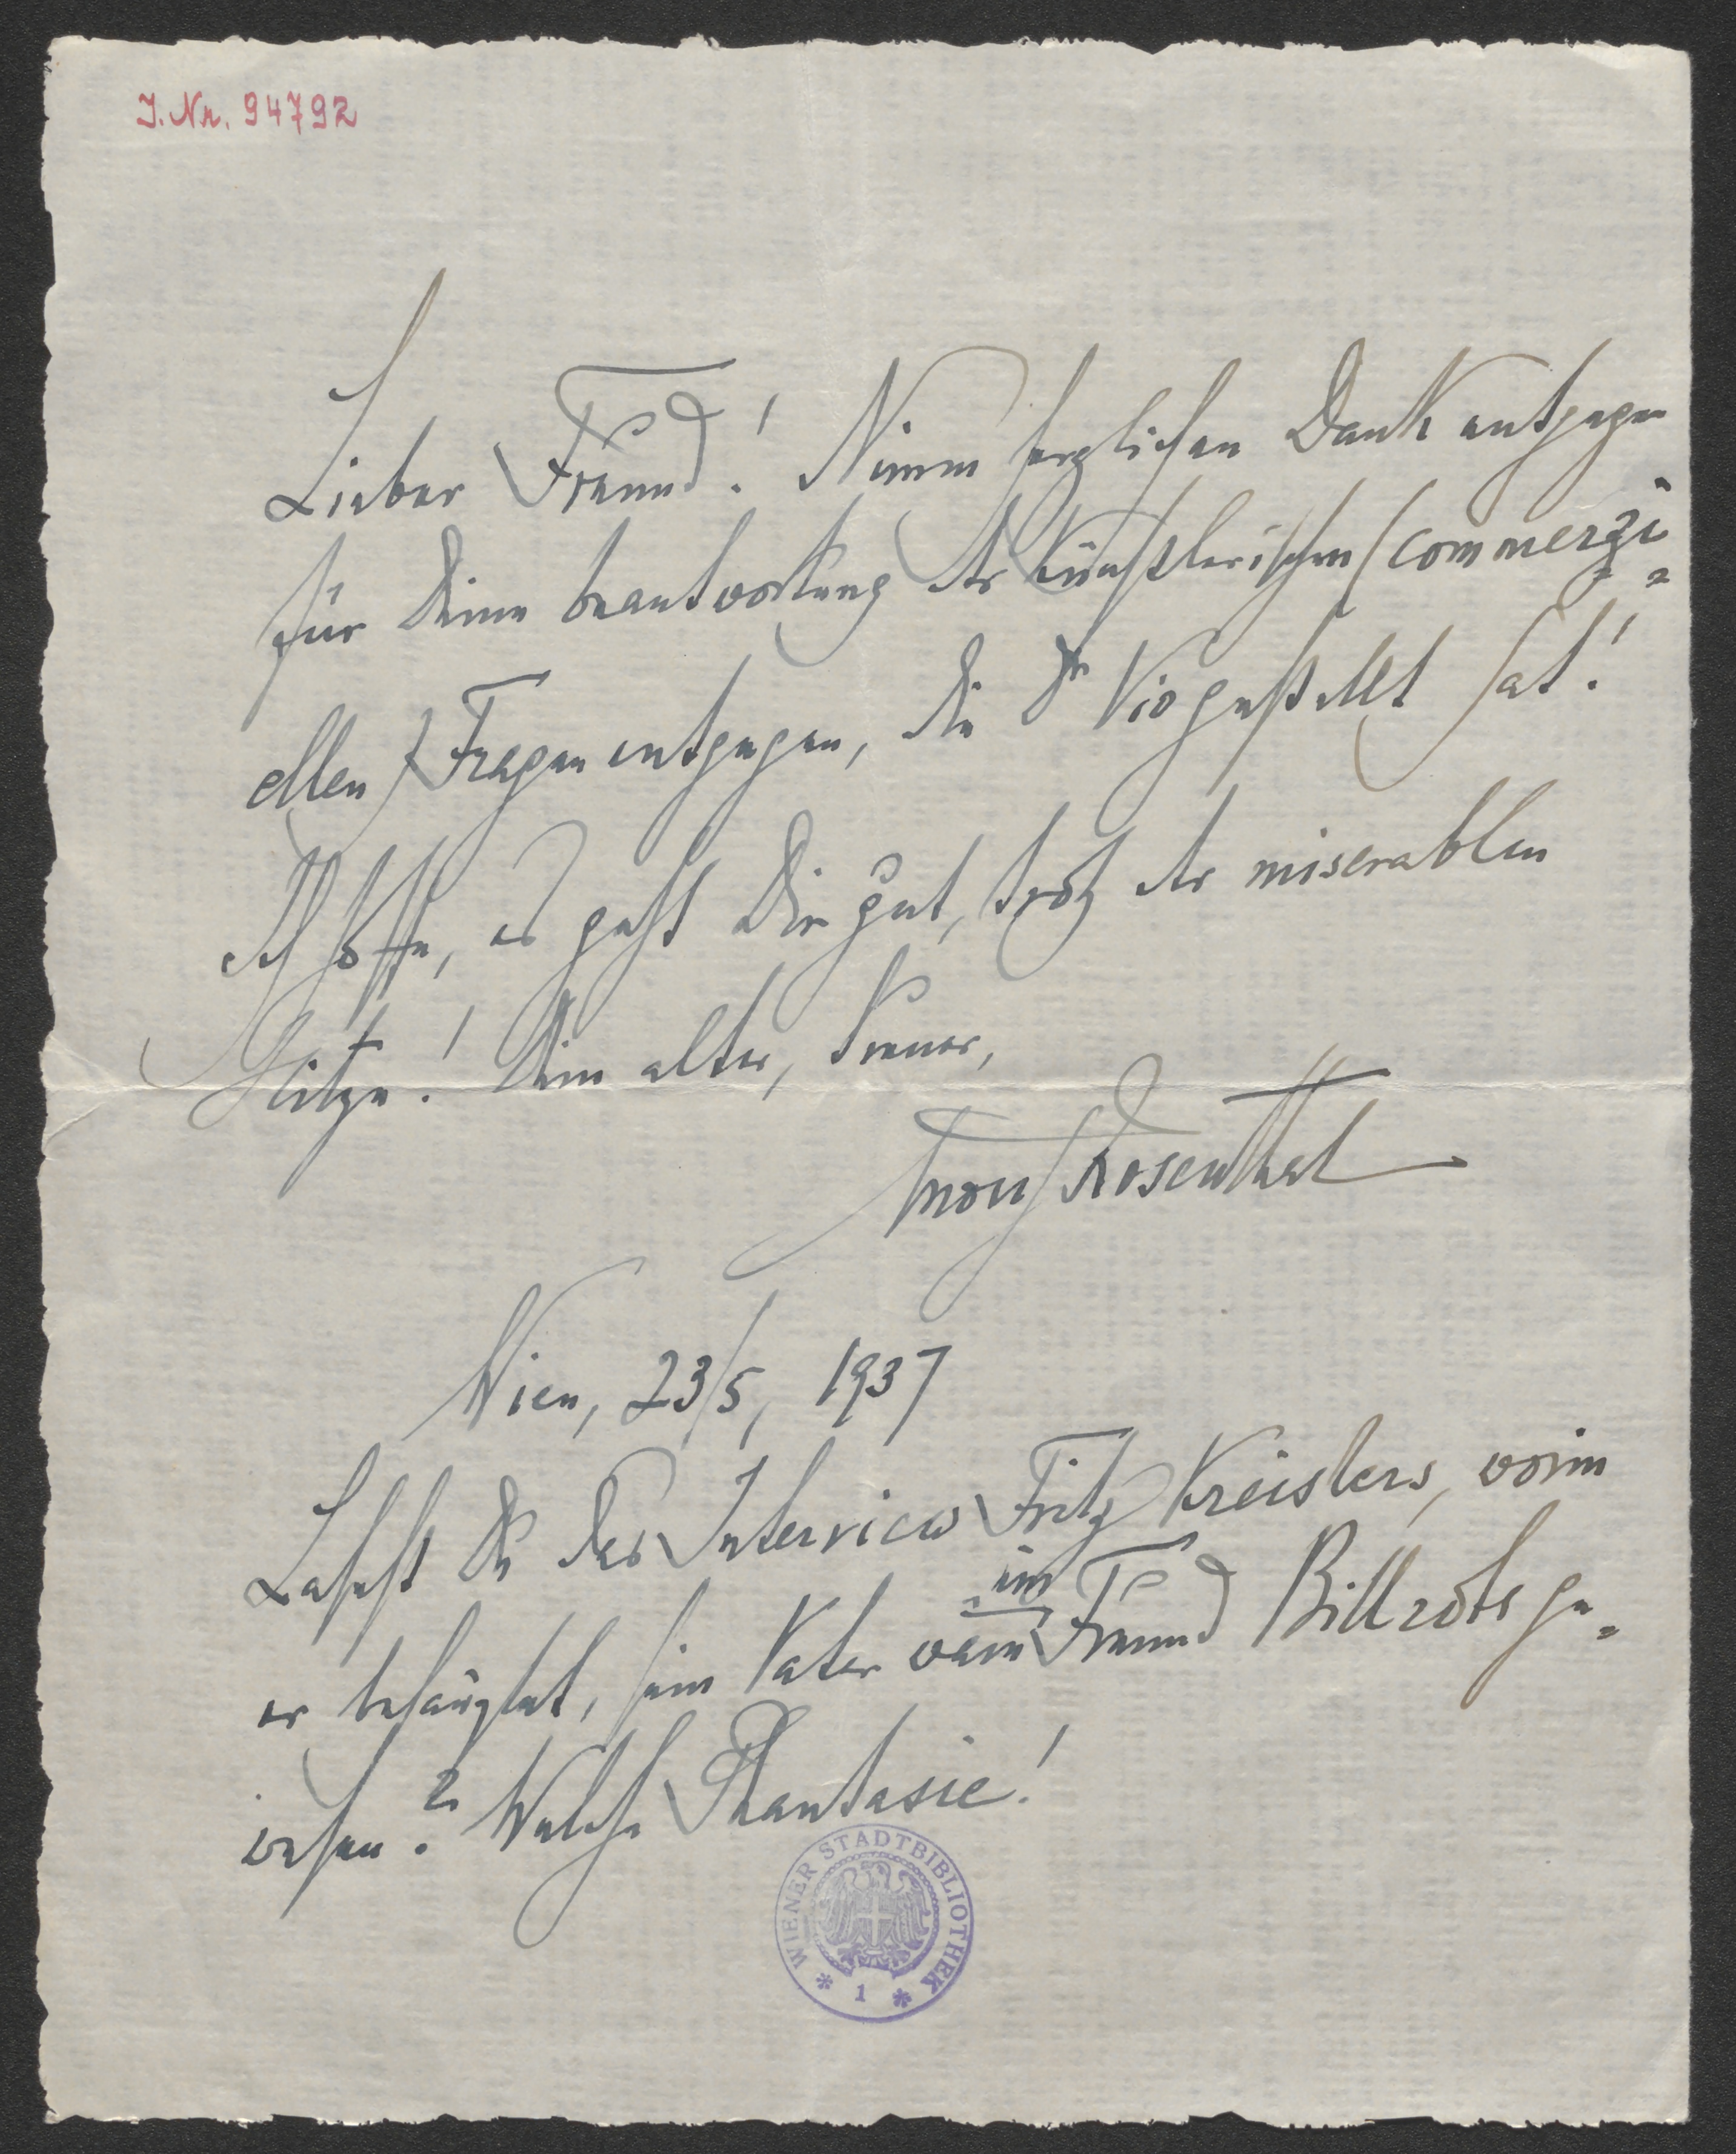 I. Nr. 94792
Lieber Freund! Nimm herzlichen Dank entgegen
für Deine Beantwortung der künstlerischen (commerzi=
ellen) Fragen entgegen, die Dr Vio gestellt hat!
Ich hoffe, es geht Dir gut, trotz der miserablen
Hitze! Dein alter, treuer,
Moriz Rosenthal
Wien, 23/5, 1937
Lasest Du das Interview Fritz Kreislers, worin
er behauptet, sein Vater wäre ein Freund Billrots ge=
wesen? Welche Phantasie!
WIENER STADTBIBLIOTHEK
* 1 *